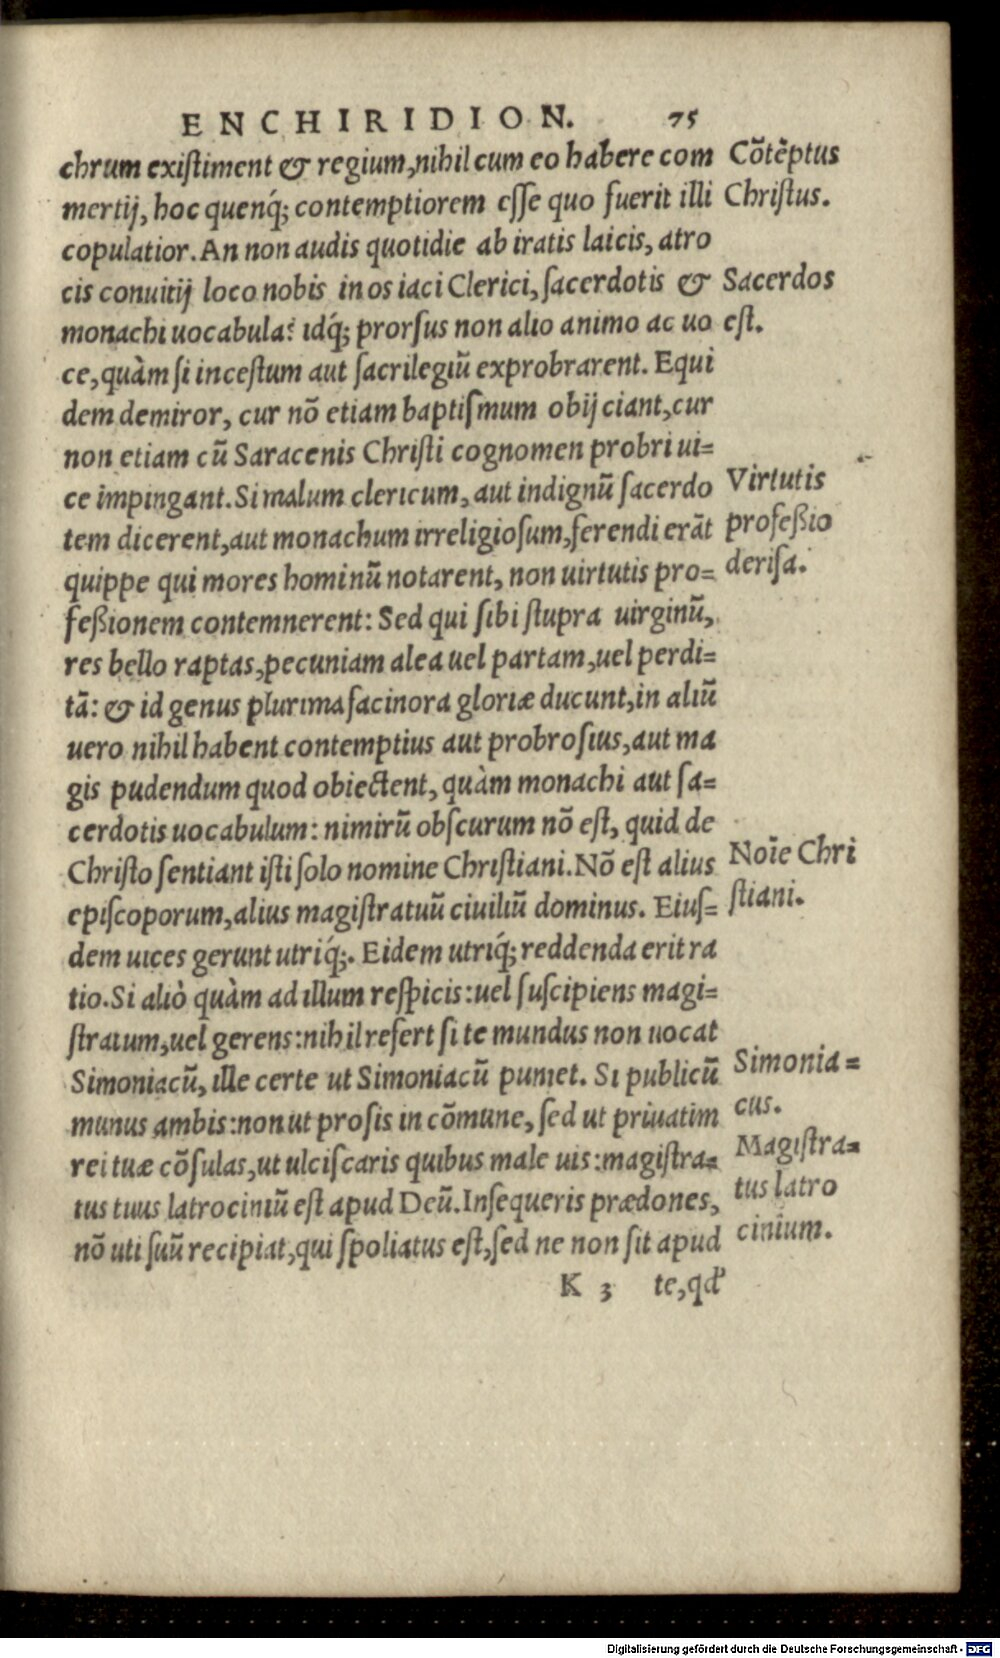 ENCHIRIDION. 75
chrum existiment & regium, nihil cum eo habere com
mertij, hoc quenq́; contemptiorem esse quo fuerit illi
copulatior. An non audis quotidie ab iratis laicis, atro
cis conuitij loco nobis in os iaci Clerici, sacerdotis &
monachi uocabula? idq́; prorsus non alio animo ac uo
ce, quàm si incestum aut sacrilegiū exprobrarent. Equi
dem demiror, cur nō etiam baptismum obijciant, cur
non etiam cū Saracenis Christi cognomen probri ui=
ce impingant. Si malum clericum, aut indignū sacerdo
tem dicerent, aut monachum irreligiosum, ferendi erāt
quippe qui mores hominū notarent, non uirtutis pro=
feßionem contemnerent: Sed qui sibi stupra uirginū,
res bello raptas, pecuniam alea uel partam, uel perdi=
tā: & id genus plurima facinora gloriæ ducunt, in aliū
uero nihil habent contemptius aut probrosius, aut ma
gis pudendum quod obiectent, quàm monachi aut sa=
cerdotis uocabulum: nimirū obscurum nō est, quid de
Christo sentiant isti solo nomine Christiani. Nō est alius
episcoporum, alius magistratuū ciuiliū dominus. Eius=
dem uices gerunt utriq́;. Eidem utriq́; reddenda erit ra
tio. Si aliò quàm ad illum respicis: uel suscipiens magi=
stratum, uel gerens: nihil refert si te mundus non uocat
Simoniacū, ille certe ut Simoniacū puniet. Si publicū
munus ambis: non ut prosis in cōmune, sed ut priuatim
rei tuæ cōsulas, ut ulciscaris quibus male uis: magistra=
tus tuus latrociniū est apud Deū. Insequeris prædones,
nō uti suū recipiat, qui spoliatus est, sed ne non sit apud
K 3 te, qd'
Cōtēptus
Christus.
Sacerdos
est.
Virtutis
profeßio
derisa.
Noīe Chri
stiani.
Simonia=
cus.
Magistra=
tus latro
cinium.
Digitalisierung gefördert durch die Deutsche Forschungsgemeinschaft - DFG